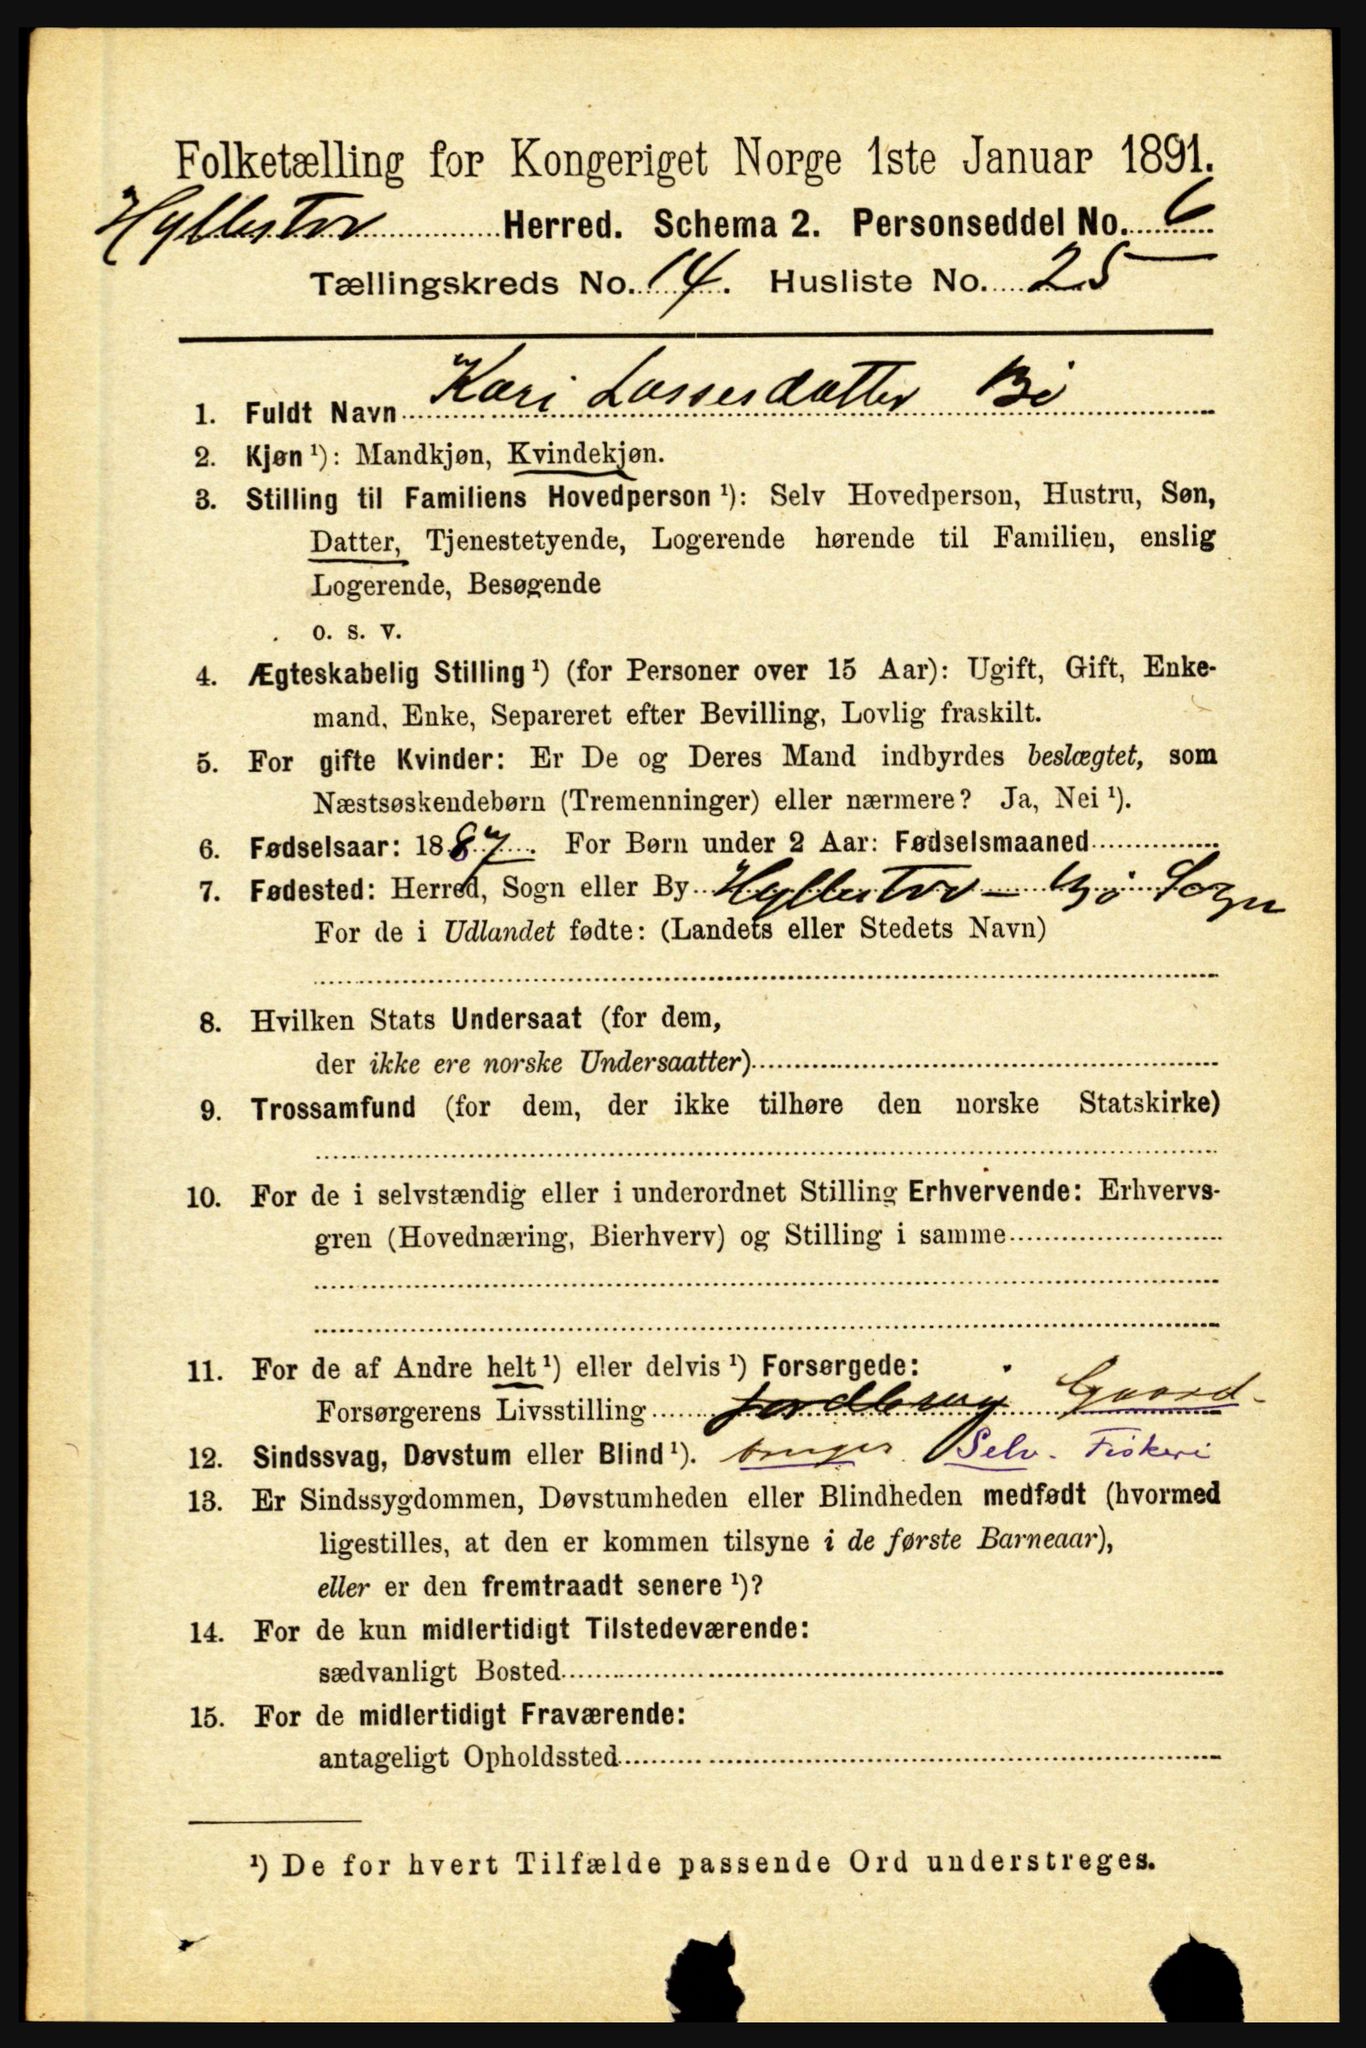 Folketælling for Kongeriget Norge 1ste Januar 1891.
Hyllestad Herred. Schema 2. Personseddel No. 6
Tællingskreds No. 14. Husliste No. 25
1. Fuldt Navn Kari Lassesdatter Bø
2. Kjøn ¹): Mandkjøn, Kvindekjøn.
3. Stilling til Familiens Hovedperson ¹): Selv Hovedperson, Hustru, Søn,
Datter, Tjenestetyende, Logerende hørende til Familien, enslig
Logerende, Besøgende
o. s. v.
4. Ægteskabelig Stilling ¹) (for Personer over 15 Aar): Ugift, Gift, Enke-
mand, Enke, Separeret efter Bevilling, Lovlig fraskilt.
5. For gifte Kvinder: Er De og Deres Mand indbyrdes beslægtet, som
Næstsøskendebørn (Tremenninger) eller nærmere? Ja, Nei ¹).
6. Fødselsaar: 1887. For Børn under 2 Aar: Fødselsmaaned
7. Fødested: Herred, Sogn eller By Hyllestad - Bø Sogn
For de i Udlandet fødte: (Landets eller Stedets Navn)
8. Hvilken Stats Undersaat (for dem,
der ikke ere norske Undersaatter)
9. Trossamfund (for dem, der ikke tilhøre den norske Statskirke)
10. For de i selvstændig eller i underordnet Stilling Erhvervende: Erhvervs-
gren (Hovednæring, Bierhverv) og Stilling i samme
11. For de af Andre helt ¹) eller delvis ¹) Forsørgede:
Forsørgerens Livsstilling Jordbrug Gaard-
12. Sindssvag, Døvstum eller Blind ¹). bruger Selv. Fiskeri
13. Er Sindssygdommen, Døvstumheden eller Blindheden medfødt (hvormed
ligestilles, at den er kommen tilsyne i de første Barneaar),
eller er den fremtraadt senere ¹)?
14. For de kun midlertidigt Tilstedeværende:
sædvanligt Bosted
15. For de midlertidigt Fraværende:
antageligt Opholdssted
¹) De for hvert Tilfælde passende Ord understreges.